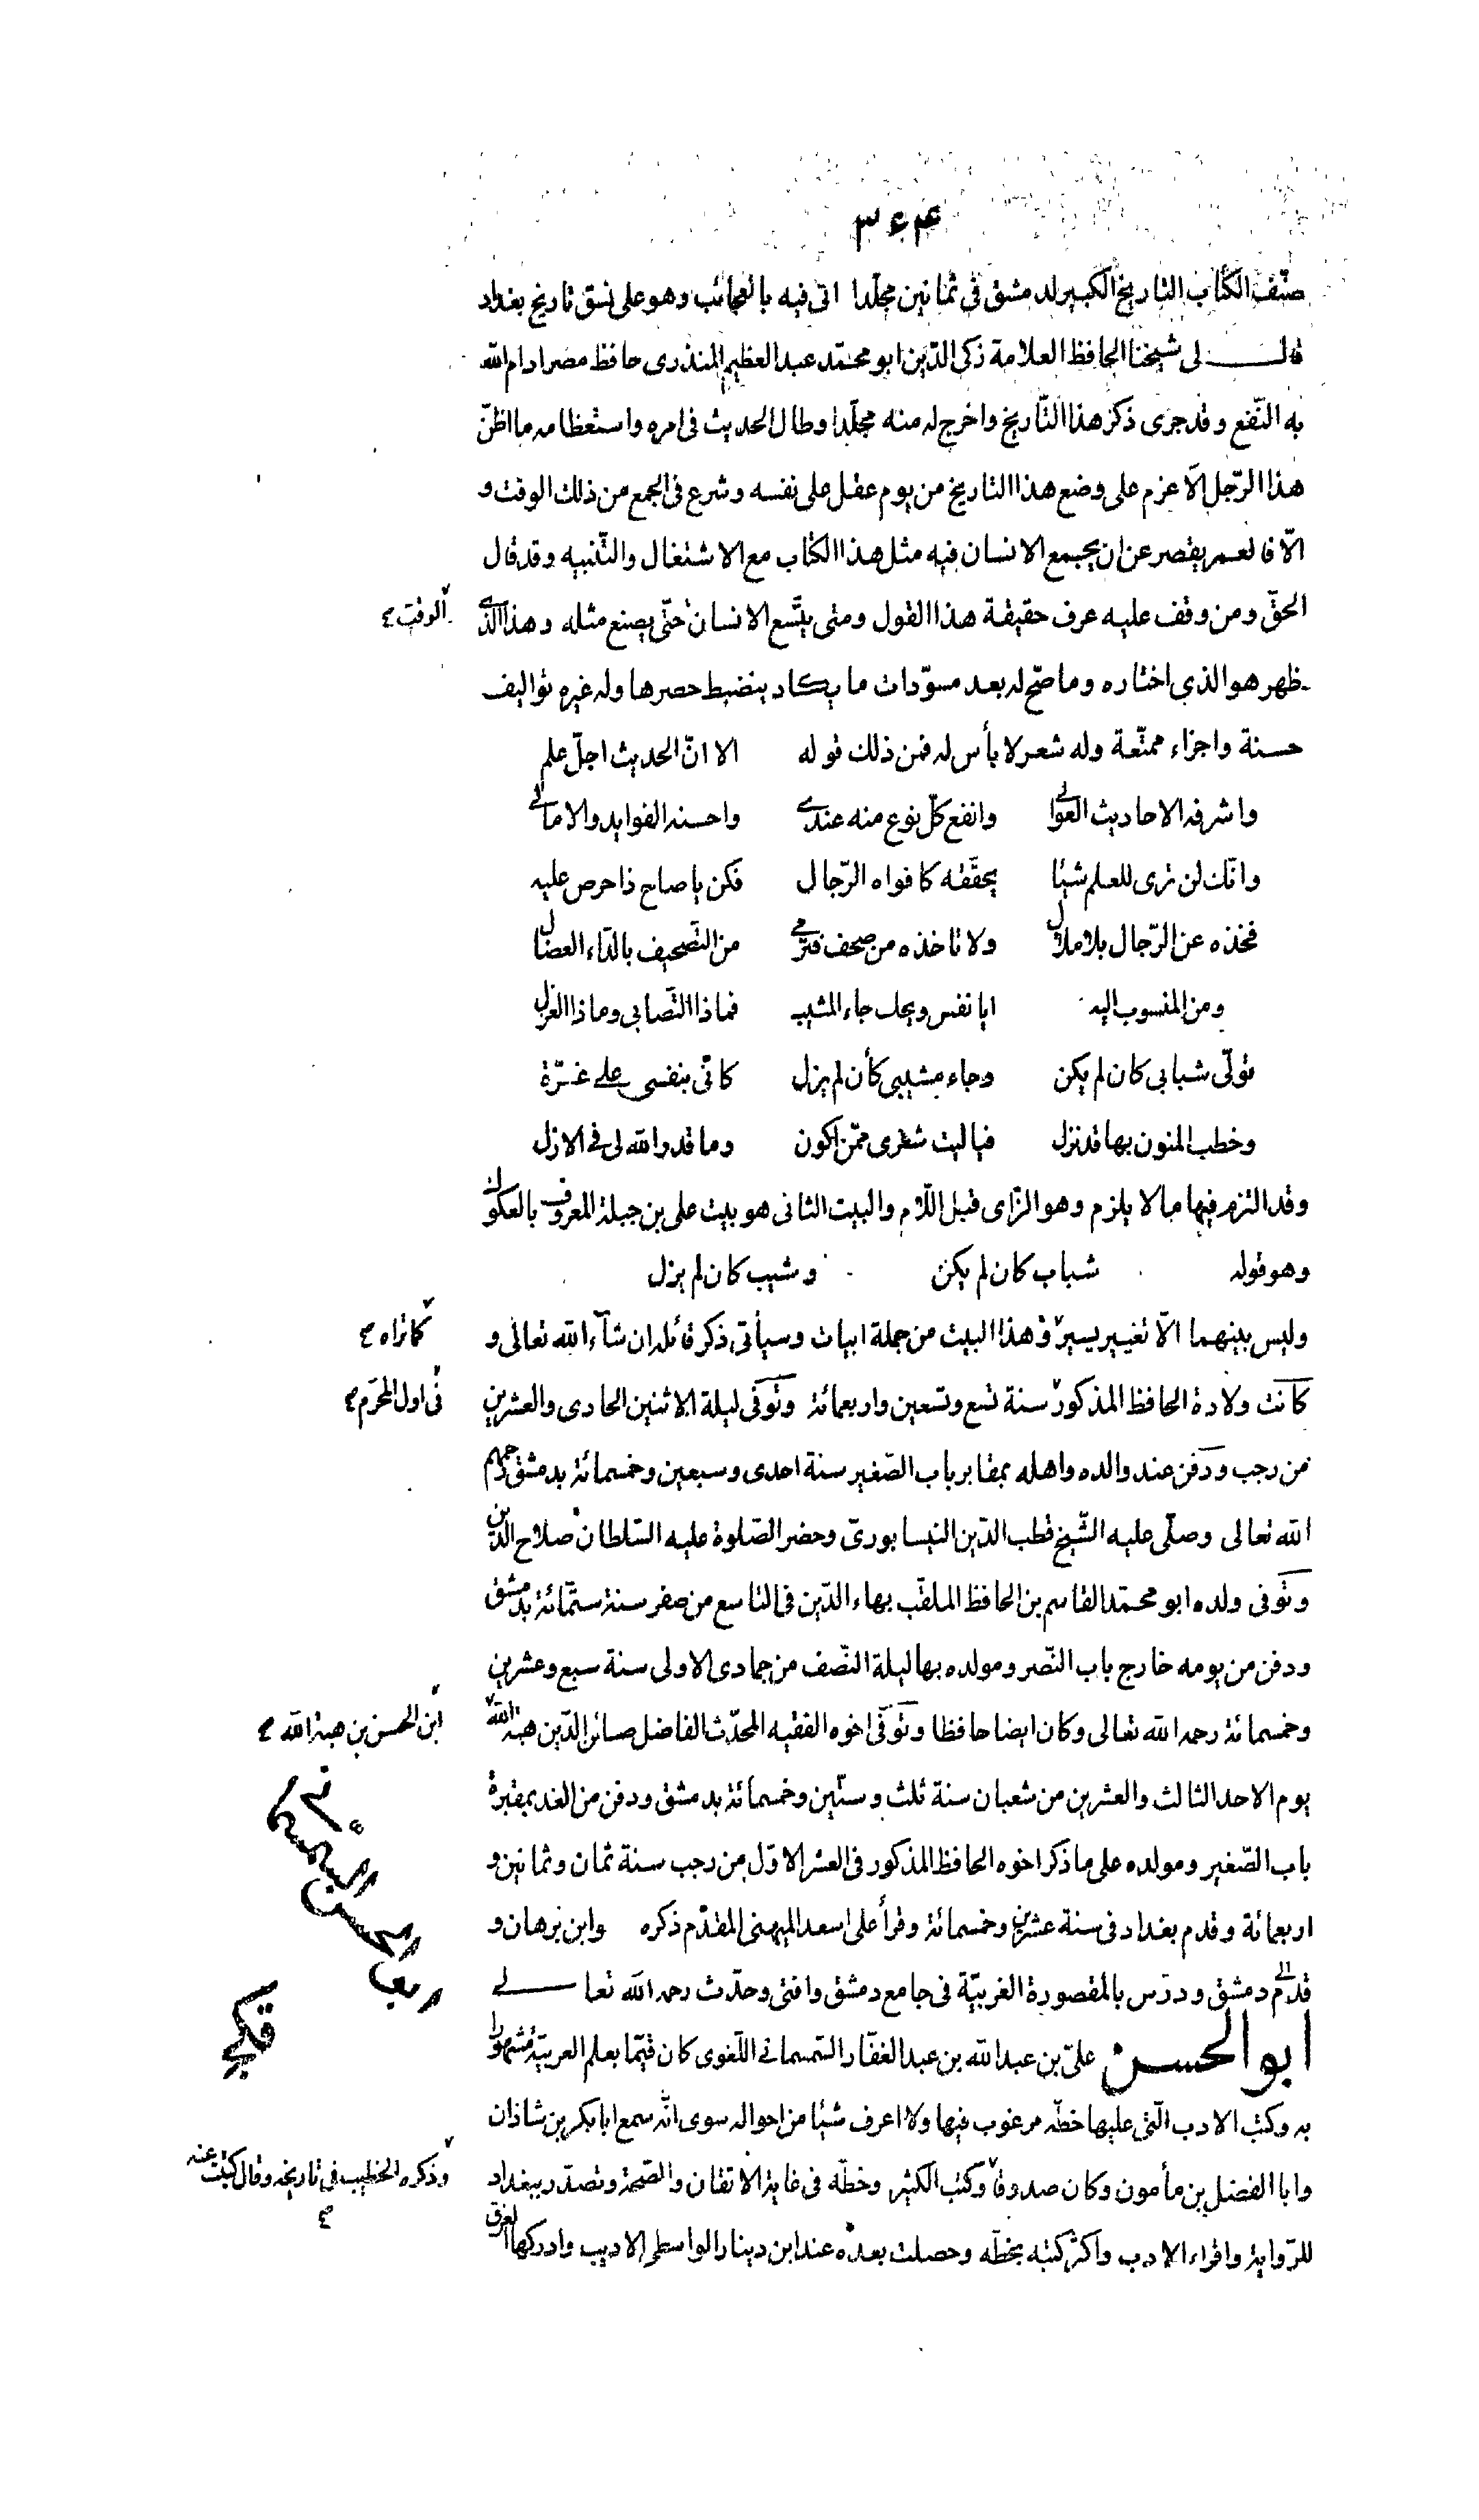 ۳۶۴
صنّف الكتاب التاريخ الكبير لدمشق فى ثمانين مجلّدا اتى فيه بالعجائب وهو على نسق تاريخ بغداد
قال لى شيخنا الحافظ العلامة زكى الدّين ابو محمّد عبد العظيم المنذرى حافظ مصر ادام الله
به النّفع وقد جرى ذكر هذا التّاريخ واخرج له منه مجلّدا وطال الحديث فى امره واستعظامه ما اظنّ
هذا الرّجل الّا عزم على وضع هذا التاريخ من يوم عقل على نفسه وشرع فى الجمع من ذلك الوقت و
الّا فالعمر يقصر عن ان يجمع الانسان فيه مثل هذا الكتاب مع الاشتغال والتّنبيه وقد قال
الحقّ ومن وقف عليه عرف حقيقة هذا القول ومتى يتّسع الانسان حتّى يصنع مثله وهذا الذى
الوقت
ظهر هو الذى اختاره وما صحّ له بعد مسوّدات ما يكاد ينضبط حصرها وله غيره تواليف
حسنة واجزاء ممتّعة وله شعر لا بأس له فمن ذلك قوله الا انّ الحديث اجلّ علم
واشرفه الاحاديث العوالى وانفع كلّ نوع منه عندى واحسنه الفوايد والامالى
وانّك لن ترى للعلم شيئا يحقّقه كافواه الرّجال فكن يا صاح ذا حرص عليه
فخذه عن الرّجال بلا ملال ولا تاخذه من صحف فترمى من التّصحيف بالدّاء العضال
ومن المنسوب اليه ايا نفس ويحك جاء المشيب فماذا التّصابى وماذا الغزل
تولّى شبابى كان لم يكن وجاء مشيبى كأن لم يزل كانّى بنفسى على غرّة
وخطب المنون بها قد نزل فياليت شعرى ممّن اكون وما قدر الله لى فى الازل
وقد التزم فيها ما لا يلزم وهو الزّاى قبل اللّام والبيت الثانى هو بيت على بن جبلة المعروف بالعكوك
وهو قوله شباب كان لم يكن وشيب كان لم يزل
وليس بينهما الّا تغيير يسير وهذا البيت من جملة ابيات وسيأتى ذكر قائله ان شآء الله تعالى و
كما تراه
كانت ولادة الحافظ المذكور سنة تسع وتسعين واربعمائة وتوفّى ليلة الاثنين الحادى والعشرين
فى اول المحرّم
من رجب ودفن عند والده واهله بمقابر باب الصّغير سنة احدى وسبعين وخمسمائة بدمشق رحمهم
الله تعالى وصلّى عليه الشّيخ قطب الدّين النيسابورىّ وحضر الصّلوة عليه السّلطان صلاح الدّين
وتوفى ولده ابو محمّد القاسم بن الحافظ الملقّب بهاء الدّين فى التاسع من صفر سنة ستّمائة بدمشق
ودفن من يومه خارج باب النّصر ومولده بها ليلة النّصف من جمادى الاولى سنة سبع وعشرين
وخمسمائة رحمه الله تعالى وكان ايضا حافظا وتوفّى اخوه الفقيه المحدّث الفاضل صائن الدّين هبة الله
ابن الحسن بن هبة الله
يوم الاحد الثالث والعشرين من شعبان سنة ثلث وستّين وخمسمائة بدمشق ودفن من الغد بمقبرة
باب الصّغير ومولده على ما ذكر اخوه الحافظ المذكور فى العشر الاوّل من رجب سنة ثمان وثمانين و
اربعمائة وقدم بغداد فى سنة عشرين وخمسمائة وقرأ على اسعد الميهنى المقدّم ذكره وابن برهان و
قدم الى دمشق ودرّس بالمقصورة الغربيّة فى جامع دمشق وافتى وحدّث رحمه الله تعالى
ابو الحسن السمسمانى
ابو الحسن علىّ بن عبد الله بن عبد الغفّار السّمسمانى اللّغوى كان قيّما بعلم العربيّة مشهورا
به وكتب الادب الّتى عليها خطّه مرغوب فيها ولا اعرف شيئا من احواله سوى انّه سمع ابا بكر بن شاذان
وابا الفضل بن مأمون وكان صدوقا وكتب الكثير وخطّه فى غاية الاتقان والصّحة وتصدّر ببغداد
وذكره الخطيب فى تاريخه وقال كتبت عنه
للرّواية واقراء الادب واكثر كتبه بخطّه وحصلت بعده عند ابن دينار الواسطى الاديب وادركها الغرق